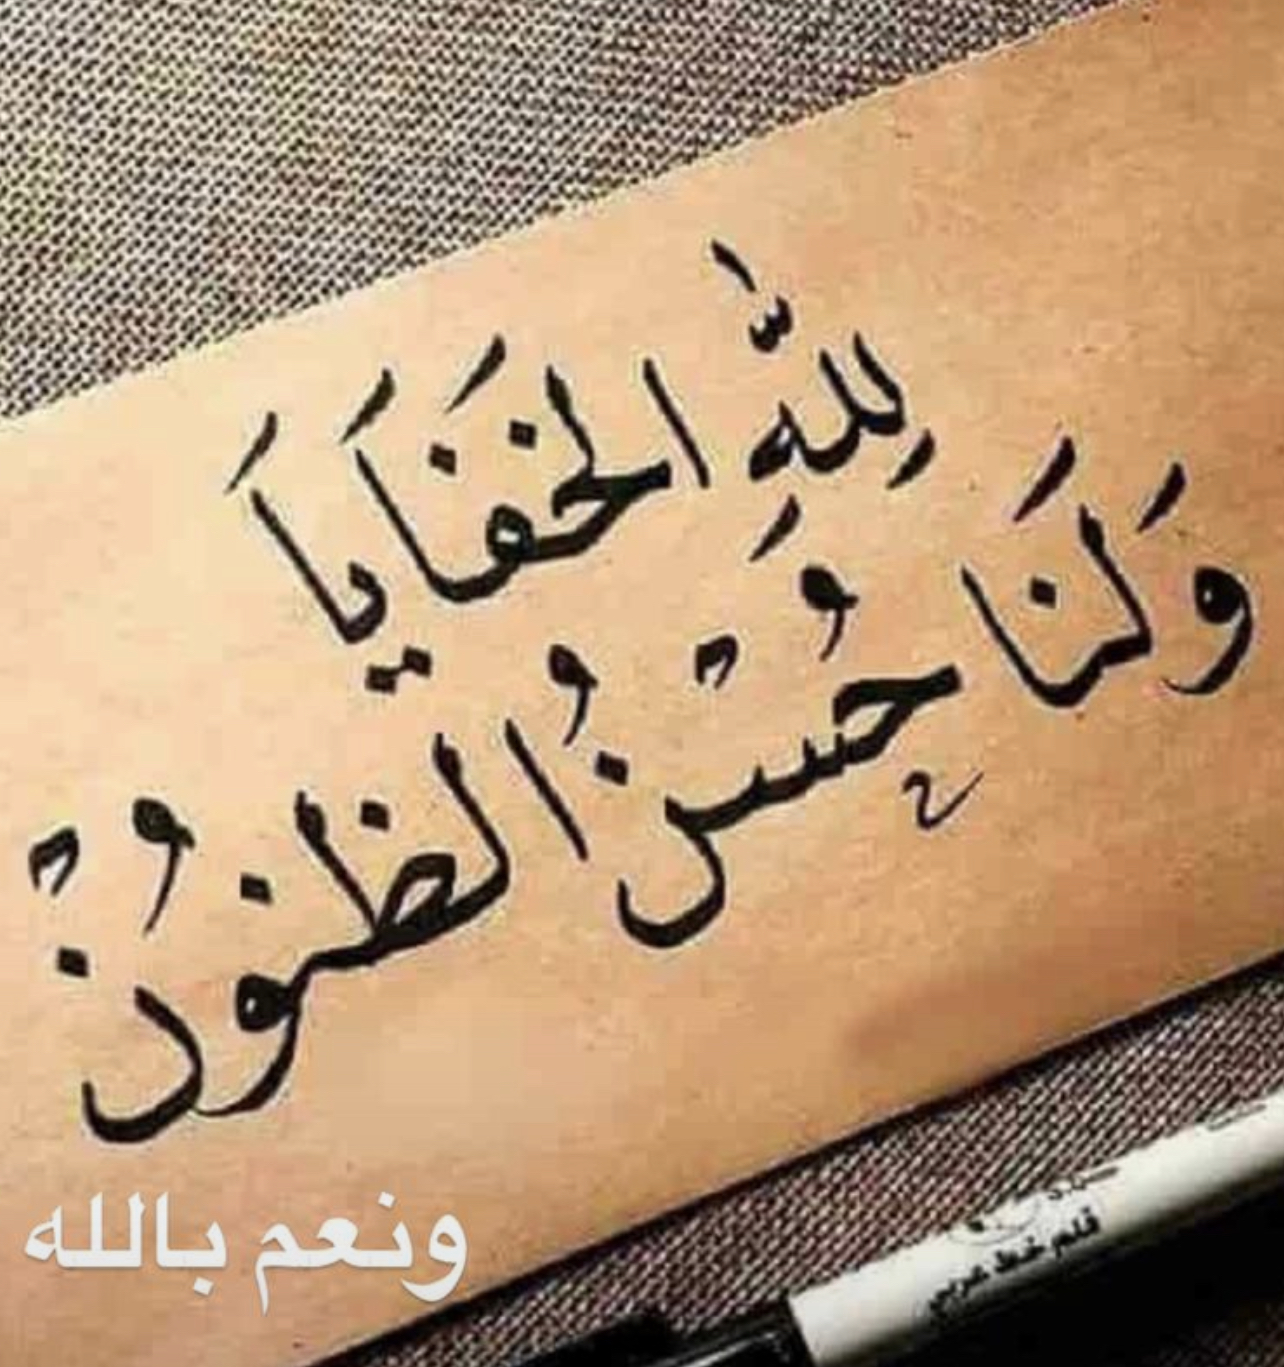 لِلَّهِ الخفَايَا
وَلَنَا حُسْنُ الظنُونْ
ونعم بالله
قلم خط عربي